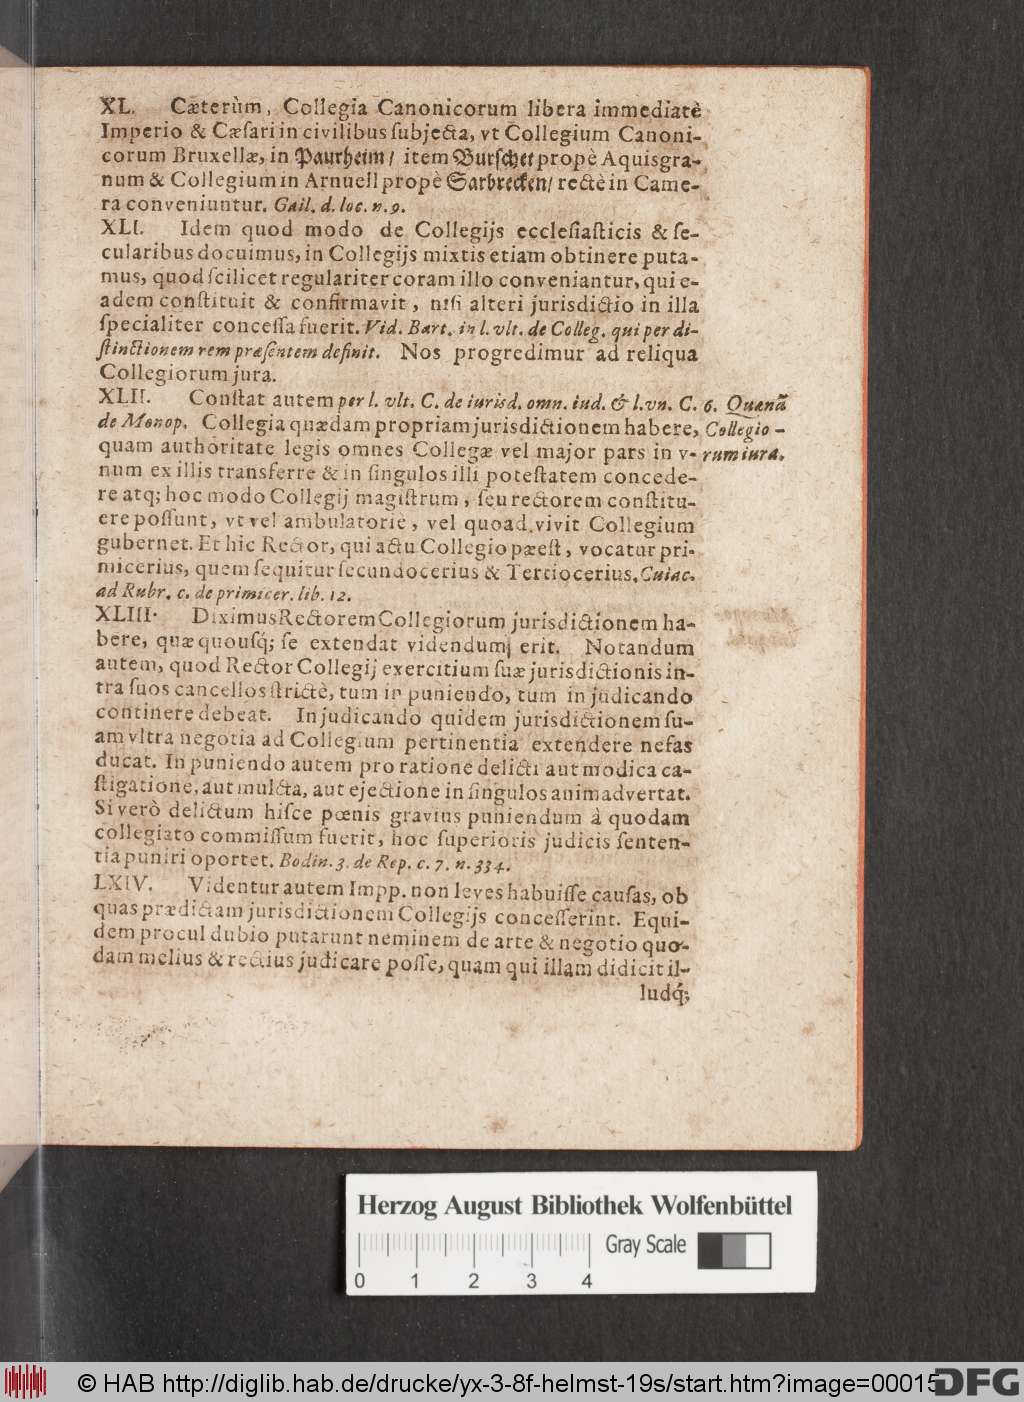 XL. Cæterùm, Collegia Canonicorum libera immediatè
Imperio & Cæsari in civilibus subjecta, vt Collegium Canoni-
corum Bruxellæ, in Paurheim/ item Burschet propè Aquisgra-
num & Collegium in Arnuell propè Sarbrecken/ rectè in Came-
ra conveniuntur. Gail. d. loc. n. 9.
XLI. Idem quod modo de Collegijs ecclesiasticis & se-
cularibus docuimus, in Collegijs mixtis etiam obtinere puta-
mus, quod scilicet regulariter coram illo conveniantur, qui e-
adem constituit & confirmavit, nisi alteri jurisdictio in illa
specialiter concessa fuerit. Vid. Bart. in l. vlt. de Colleg. qui per di-
stinctionem rem præsentem definit. Nos progredimur ad reliqua
Collegiorum jura.
XLII. Constat autem per l. vlt. C. de iurisd. omn. iud. & l. vn. C.
6. Quænā
de Monop. Collegia quædam propriam jurisdictionem habere,
Collegio-
quam authoritate legis omnes Collegæ vel major pars in v-
rum iura.
num ex illis transferre & in singulos illi potestatem concede-
re atq; hoc modo Collegij magistrum, seu rectorem constitu-
ere possunt, vt vel ambulatorie, vel quoad vivit Collegium
gubernet. Et hic Rector, qui actu Collegio pæest, vocatur pri-
micerius, quem sequitur secundocerius & Tertiocerius. Cuiac.
ad Rubr. c. de primicer. lib. 12.
XLIII. Diximus Rectorem Collegiorum jurisdictionem ha-
bere, quæ quousq́; se extendat videndum erit. Notandum
autem, quod Rector Collegij exercitium suæ jurisdictionis in-
tra suos cancellos strictè, tum in puniendo, tum in judicando
continere debeat. In judicando quidem jurisdictionem su-
am vltra negotia ad Collegium pertinentia extendere nefas
ducat. In puniendo autem pro ratione delicti aut modica ca-
stigatione, aut mulcta, aut ejectione in singulos animadvertat.
Si verò delictum hisce pœnis gravius puniendum à quodam
collegiato commissum fuerit, hoc superioris judicis senten-
tia puniri oportet. Bodin. 3. de Rep. c. 7. n. 334.
LXIV. Videntur autem Impp. non leves habuisse causas, ob
quas prædictam jurisdictionem Collegijs concesserint. Equi-
dem procul dubio putarunt neminem de arte & negotio quo-
dam melius & rectius judicare posse, quam qui illam didicit il-
ludq́;
Herzog August Bibliothek Wolfenbüttel
Gray Scale
0 1 2 3 4
© HAB http://diglib.hab.de/drucke/yx-3-8f-helmst-19s/start.htm?image=00015
DFG